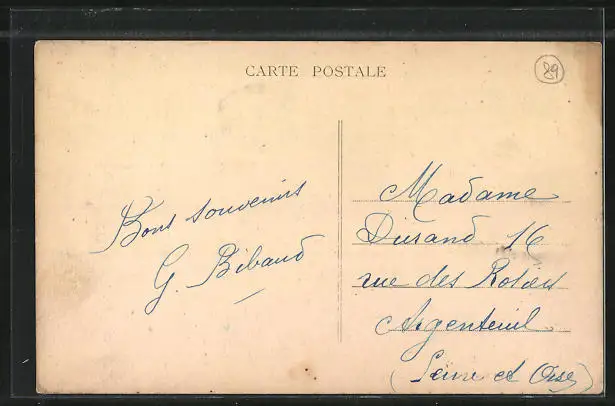 CARTE POSTALE
89
Bons souvenirs
G. Bibaud
Madame
Durand 16
rue des Rosiers
Argenteuil
(Seine et Oise)